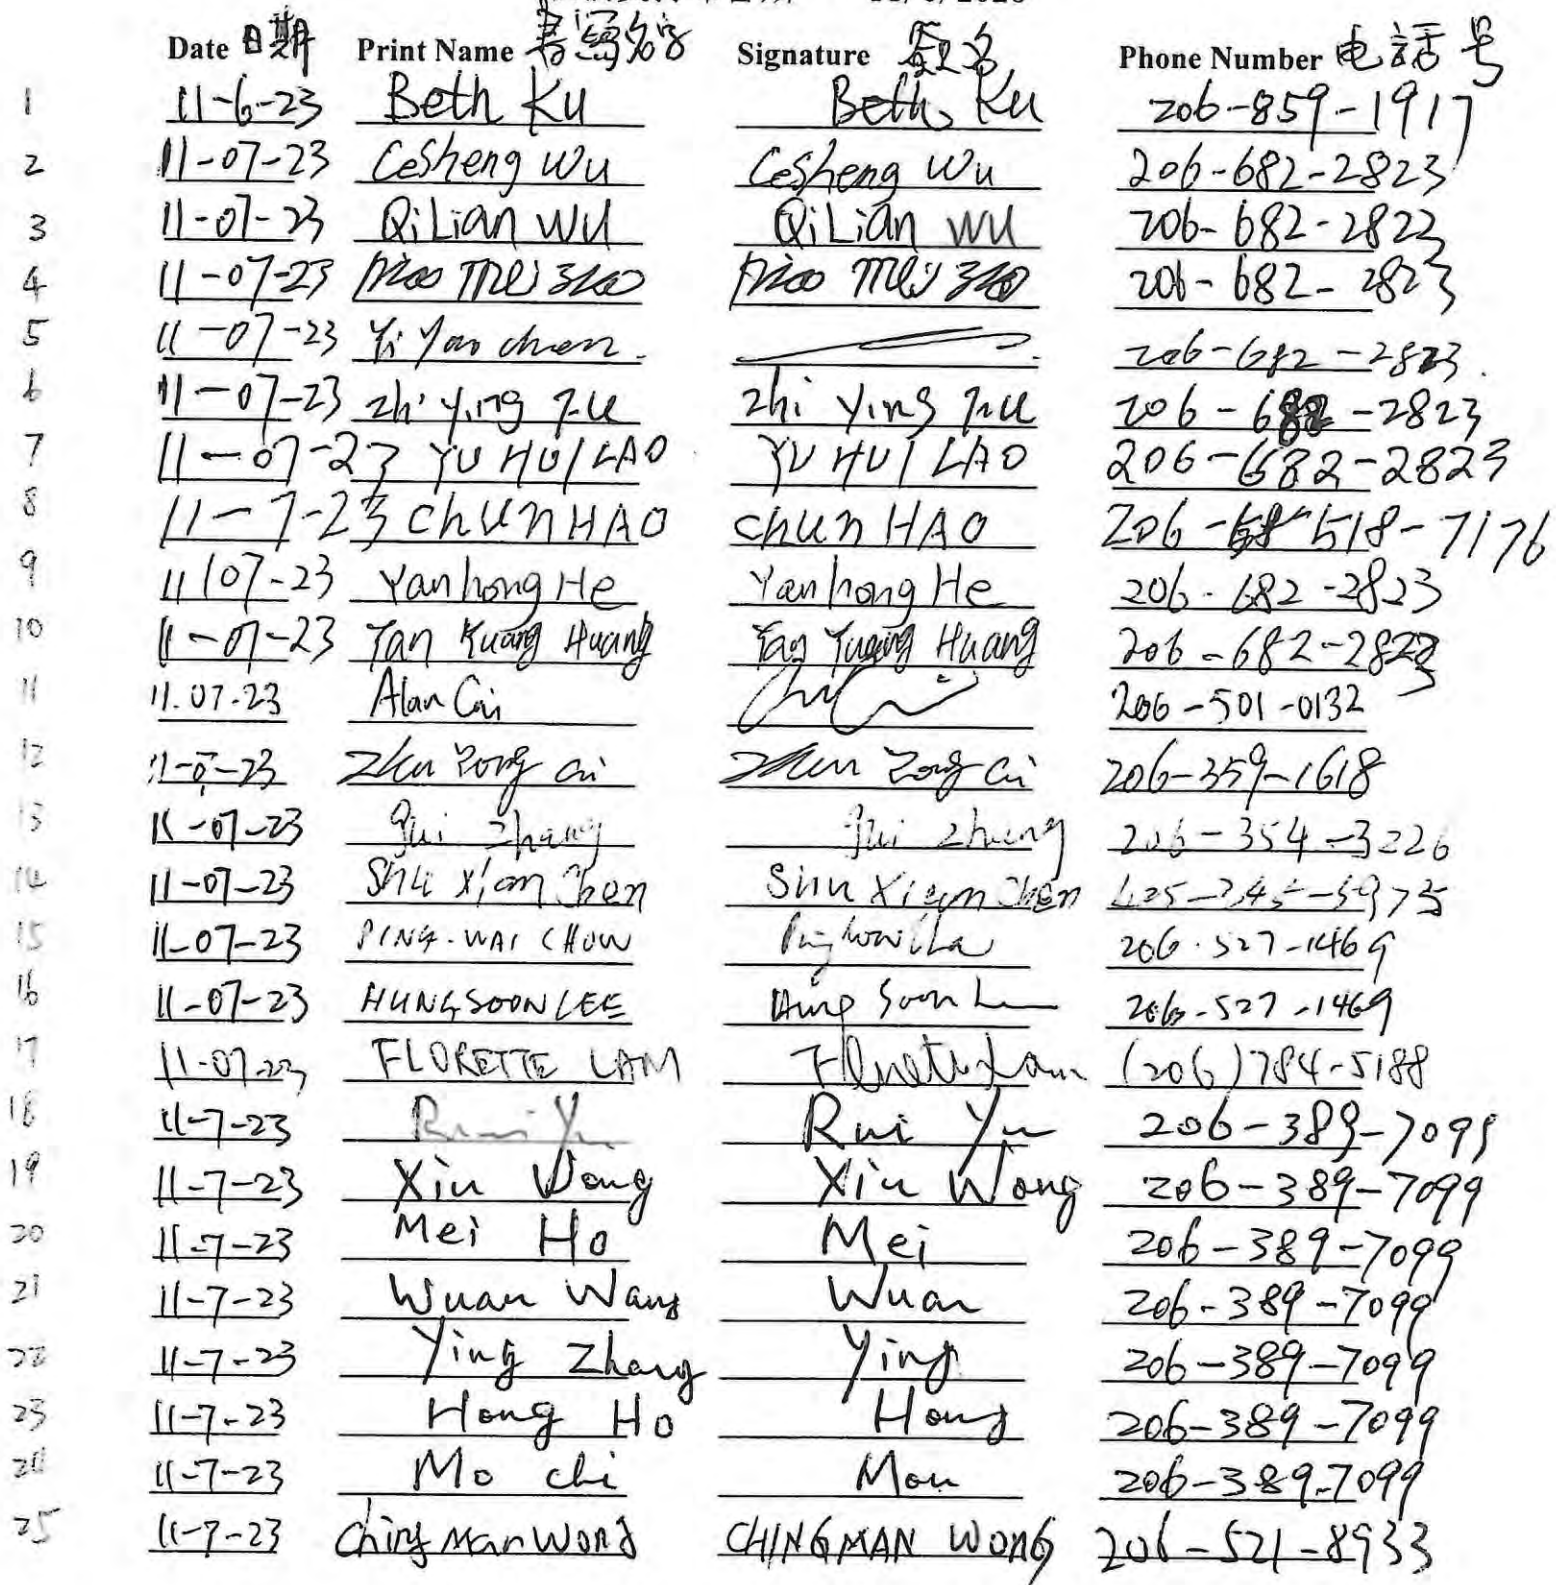 11/6/2023
Date 日期 Print Name 書寫名字 Signature 簽名 Phone Number 电話号
1 11-6-23 Beth Ku Beth Ku 206-859-1917
2 11-07-23 CeSheng Wu CeSheng Wu 206-682-2823
3 11-07-23 QiLian WU QiLian WU 206-682-2823
4 11-07-23 206-682-2823
5 11-07-23 Yi Yao chen. 206-682-2823.
6 11-07-23 zhi ying zhi ying 206-682-2823
7 11-07-23 YU HUI LAO YU HUI LAO 206-682-2823
8 11-7-23 CHUN HAO CHUN HAO 206-518-7176
9 11/07-23 Yanhong He Yanhong He 206-682-2823
10 11-07-23 Yan Kuang Huang Yan Huang 206-682-2823
11 11.07-23 Alan Cai 206-501-0132
12 Zhu Zong Cai Zong Cai 206-359-1618
13 11-07-23 Gui Zhang Gui Zhang 206-354-3226
14 11-07-23 Shu Xian Chen Shu Xian Chen
15 11-07-23 PING-WAI CHOW 206-527-1469
16 11-07-23 HUNG SOON LEE Hung Soon 206-527-1469
17 11-07-23 FLORETTE LAM Florette Lam (206)784-5188
18 11-7-23 Rui Yu Rui Yu 206-389-7099
19 11-7-23 Xin Wong Xin Wong 206-389-7099
20 11-7-23 Mei Ho Mei 206-389-7099
21 11-7-23 Wuan Wang Wuan 206-389-7099
22 11-7-23 Ying Zhang Ying 206-389-7099
23 11-7-23 Hong Ho Hong 206-389-7099
24 11-7-23 Mo chi Mou 206-389-7099
25 11-7-23 Ching Man Wong CHING MAN WONG 206-521-8933